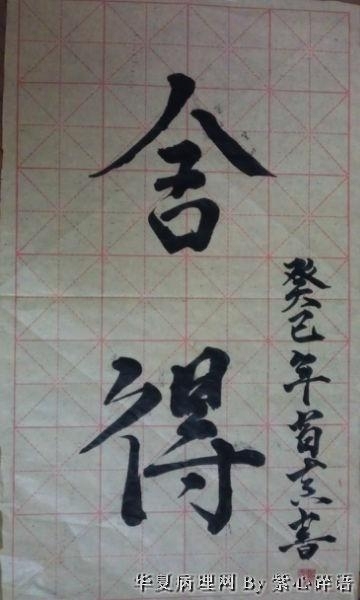 舍得
癸巳年首书
华夏病理网 By 紫心碎语